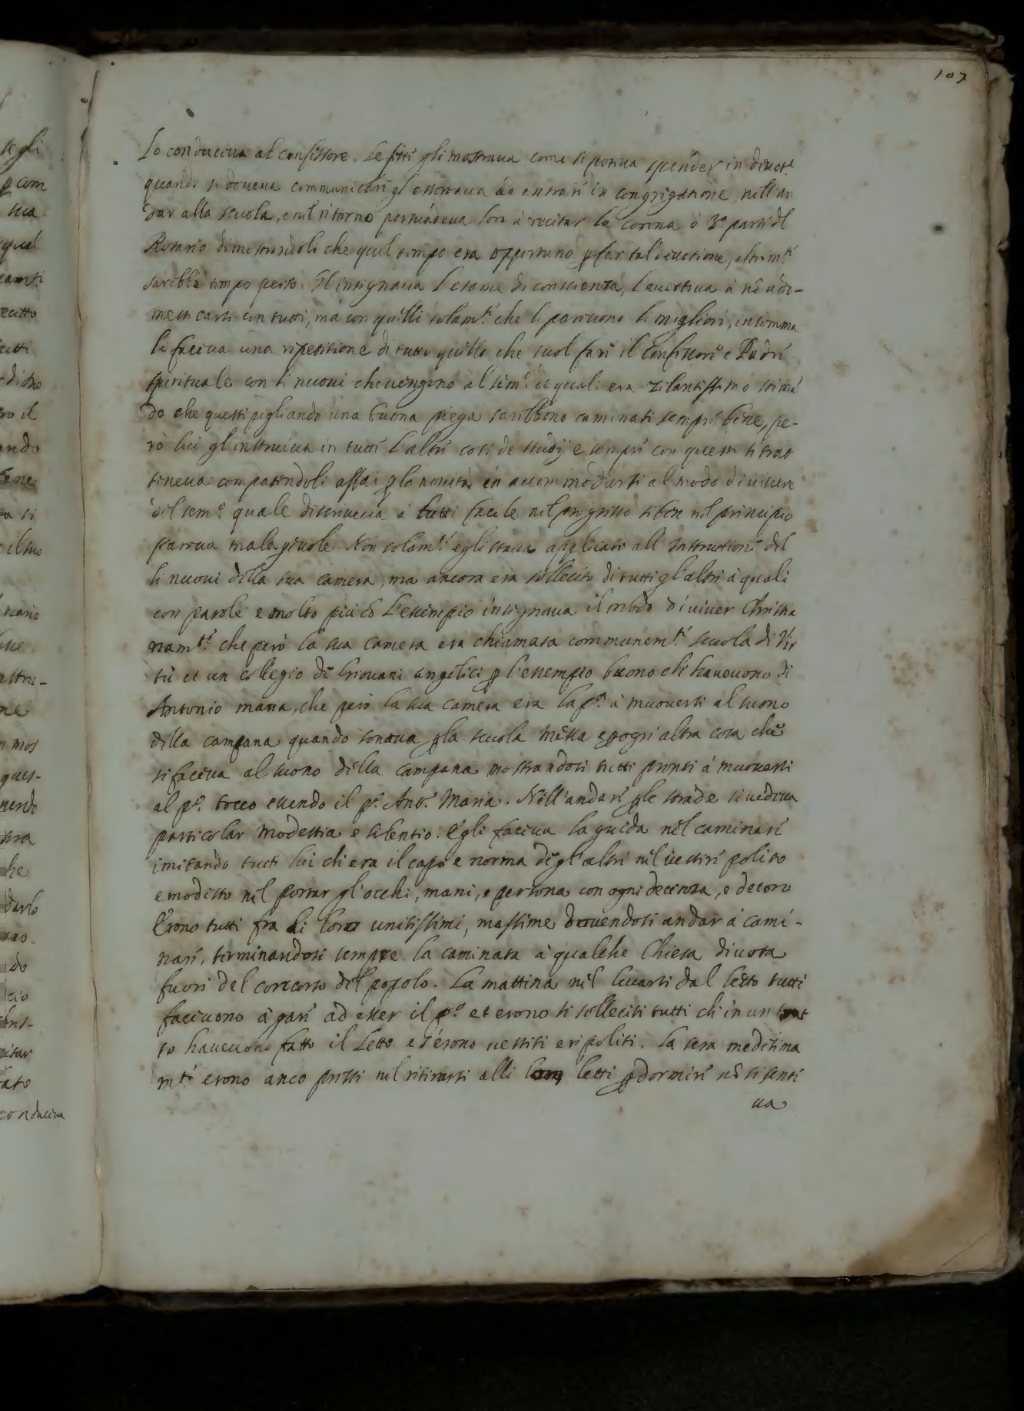 107
lo conduceva al confessore. Le feste gli mostrava come si poteva spender in divot.e
quando si doveva communicarsi gl'essortava ad entrare in congregatione, nell'an
dar alla scuola, e nel ritorno persuadeva loro a recitar la corona o 3.a parte del
Rosario dimostrandoli che quel tempo era opportuno ꝑ far tal divotione, altrim.ti
sarebbe tempo perso. Gl'insegnava l'esame di conscienza, l'avertiva a nō adi-
mesticarsi con tutti, mà con quelli solam.te che li parevono li megliori, in somma
li faceva una repetitione di tutto quello che suol fare il Confessore e Padre
spirituale con li nuovi che vengono al sem.o de quali era zelantissimo stimā
do che questi pigliando una buona piega sarebbeno caminati sempre bene, pe-
rò lui gl'instruiva in tutte l'altre cose de studij e sempre con questi si trat
teneva compatendoli assai ꝑ la novità in accommodarsi al modo di vivere
del sem.o quale diceva a tutti facile nel progresso se ben nel principio
pareva malagevole. Non solam.te egli stava applicato all'instruttione del
li nuovi della sua camera, ma ancora era sollecito di tutti gl'altri a quali
con parole e molto più cō l'essempio insegnava il modo di viver Christia
nam.te che però la sua camera era chiamata communem.te scuola di Vir
tù et un collegio de Giovani angelici ꝑ l'essempio buono ch'havevono di
Antonio maria, che però la sua camera era la p.a a muoversi al suono
della campana quando sonava ꝑ la scuola messa e ꝑ ogn'altra cosa che
si faceva al suono della campana mostrandosi tutti pronti a muoversi
al p.o tocco essendo il p.o Ant.o Maria. Nell'andare ꝑ le strade si vedeva
particolar modestia e silentio. Egli faceva la guida nel caminare
imitando tutti lui ch'era il capo e norma degl'altri nel vestire polito
e modesto nel portar gl'occhi, mani, e persona con ogni decenza, e decoro
Erono tutti fra di loro unitissimi, massime dovendosi andar a cami-
nare, terminandosi sempre la caminata a qualche Chiesa divota
fuori del concorso del popolo. La mattina nel levarsi dal letto tutti
facevono a gara ad esser il p.o et erono si solleciti tutti ch'in un trat
to havevono fatto il letto e s'erono vestiti e ripoliti. La sera medesima
m.te erono anco presti nel ritirarsi alli letti ꝑ dormire nō si senti
va